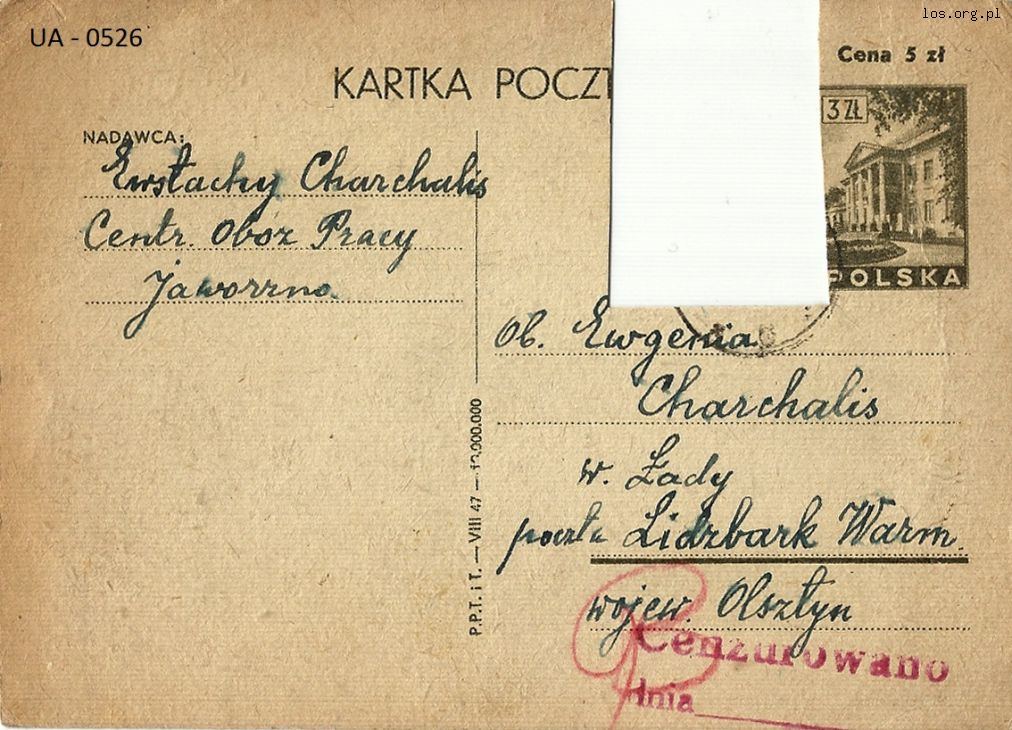 los.org.pl
UA - 0526
Cena 5 zł
KARTKA POCZT
3 ZŁ
NADAWCA:
Ewstachy Charchalis
Centr. Oboz Pracy
Jaworzno.
POLSKA
Ob. Ewgenia
Charchalis
w. Żady
poczta Lidzbark Warm.
wojew. Olsztyn
P.P.T. i T. — VIII 47 — 10.000.000
Cenzurowano
dnia